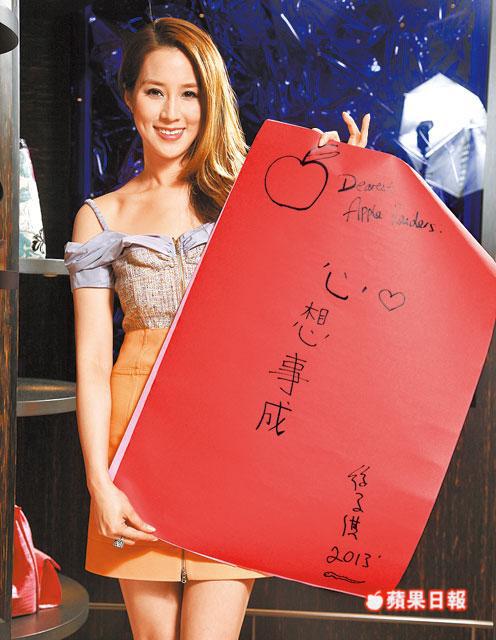 Dearest
Apple Readers.
心想事成
徐子淇
2013
蘋果日報